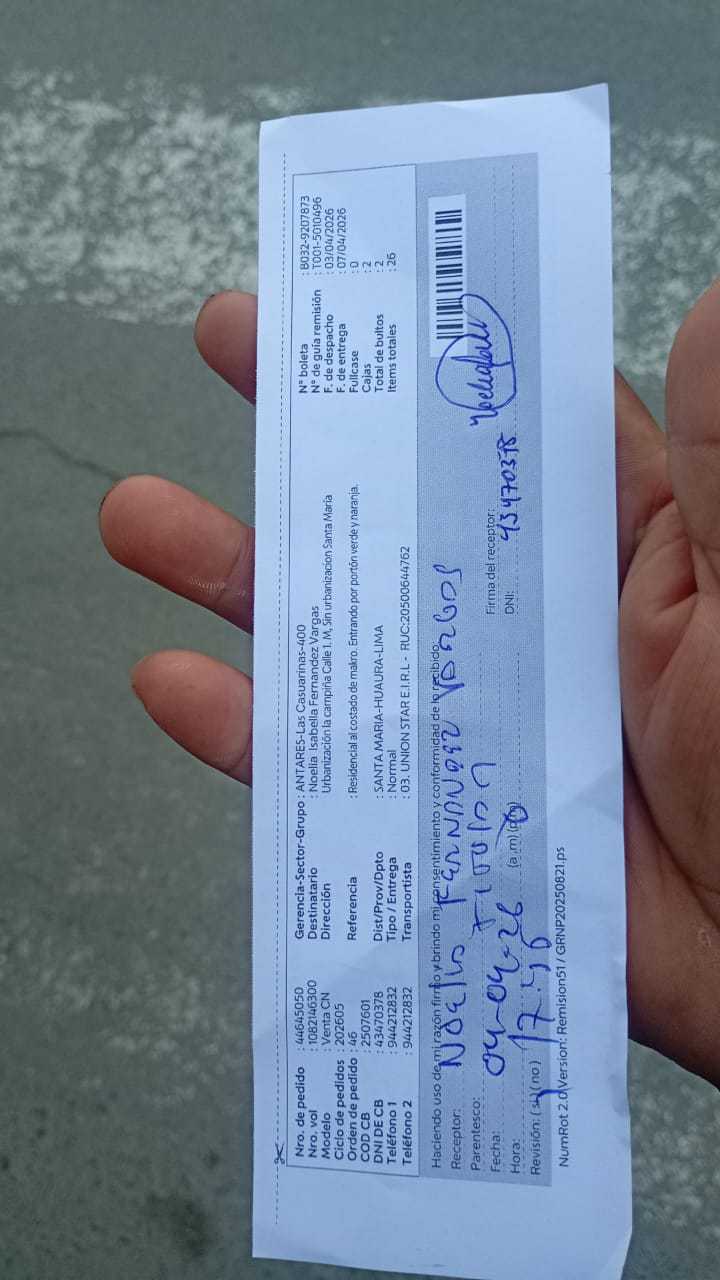 Nro. de pedido : 44645050
Nro. vol : 1082146300
Modelo : Venta CN
Ciclo de pedidos : 202605
Orden de pedido : 46
COD CB : 2507601
DNI DE CB : 43470378
Teléfono 1 : 944212832
Teléfono 2 : 944212832
Gerencia-Sector-Grupo : ANTARES-Las Casuarinas-400
Destinatario : Noelia Isabella Fernandez Vargas
Dirección Urbanización la campiña Calle 1, M, Sin urbanizacion Santa María
Referencia : Residencial al costado de makro. Entrando por portón verde y naranja.
Dist/Prov/Dpto : SANTA MARIA-HUAURA-LIMA
Tipo / Entrega : Normal
Transportista : 03. UNION STAR E.I.R.L - RUC:20500644762
N° boleta : B032-9207873
N° de guía remisión : T001-5010496
F. de despacho : 03/04/2026
F. de entrega : 07/04/2026
Fullcase : 0
Cajas : 2
Total de bultos : 2
Items totales : 26
Haciendo uso de mi razón firmo y brindo mi consentimiento y conformidad de lo recibido
Receptor: Noelia Fernandez Vargas
Parentesco: Titular
Fecha: 04-04-26
Firma del receptor:
Hora: 17:10 (a.m) (pm)
DNI: 43470378
Revisión: (si) (no)
NumRot 2.0 Version: Remision51 / GRNP20250821.ps